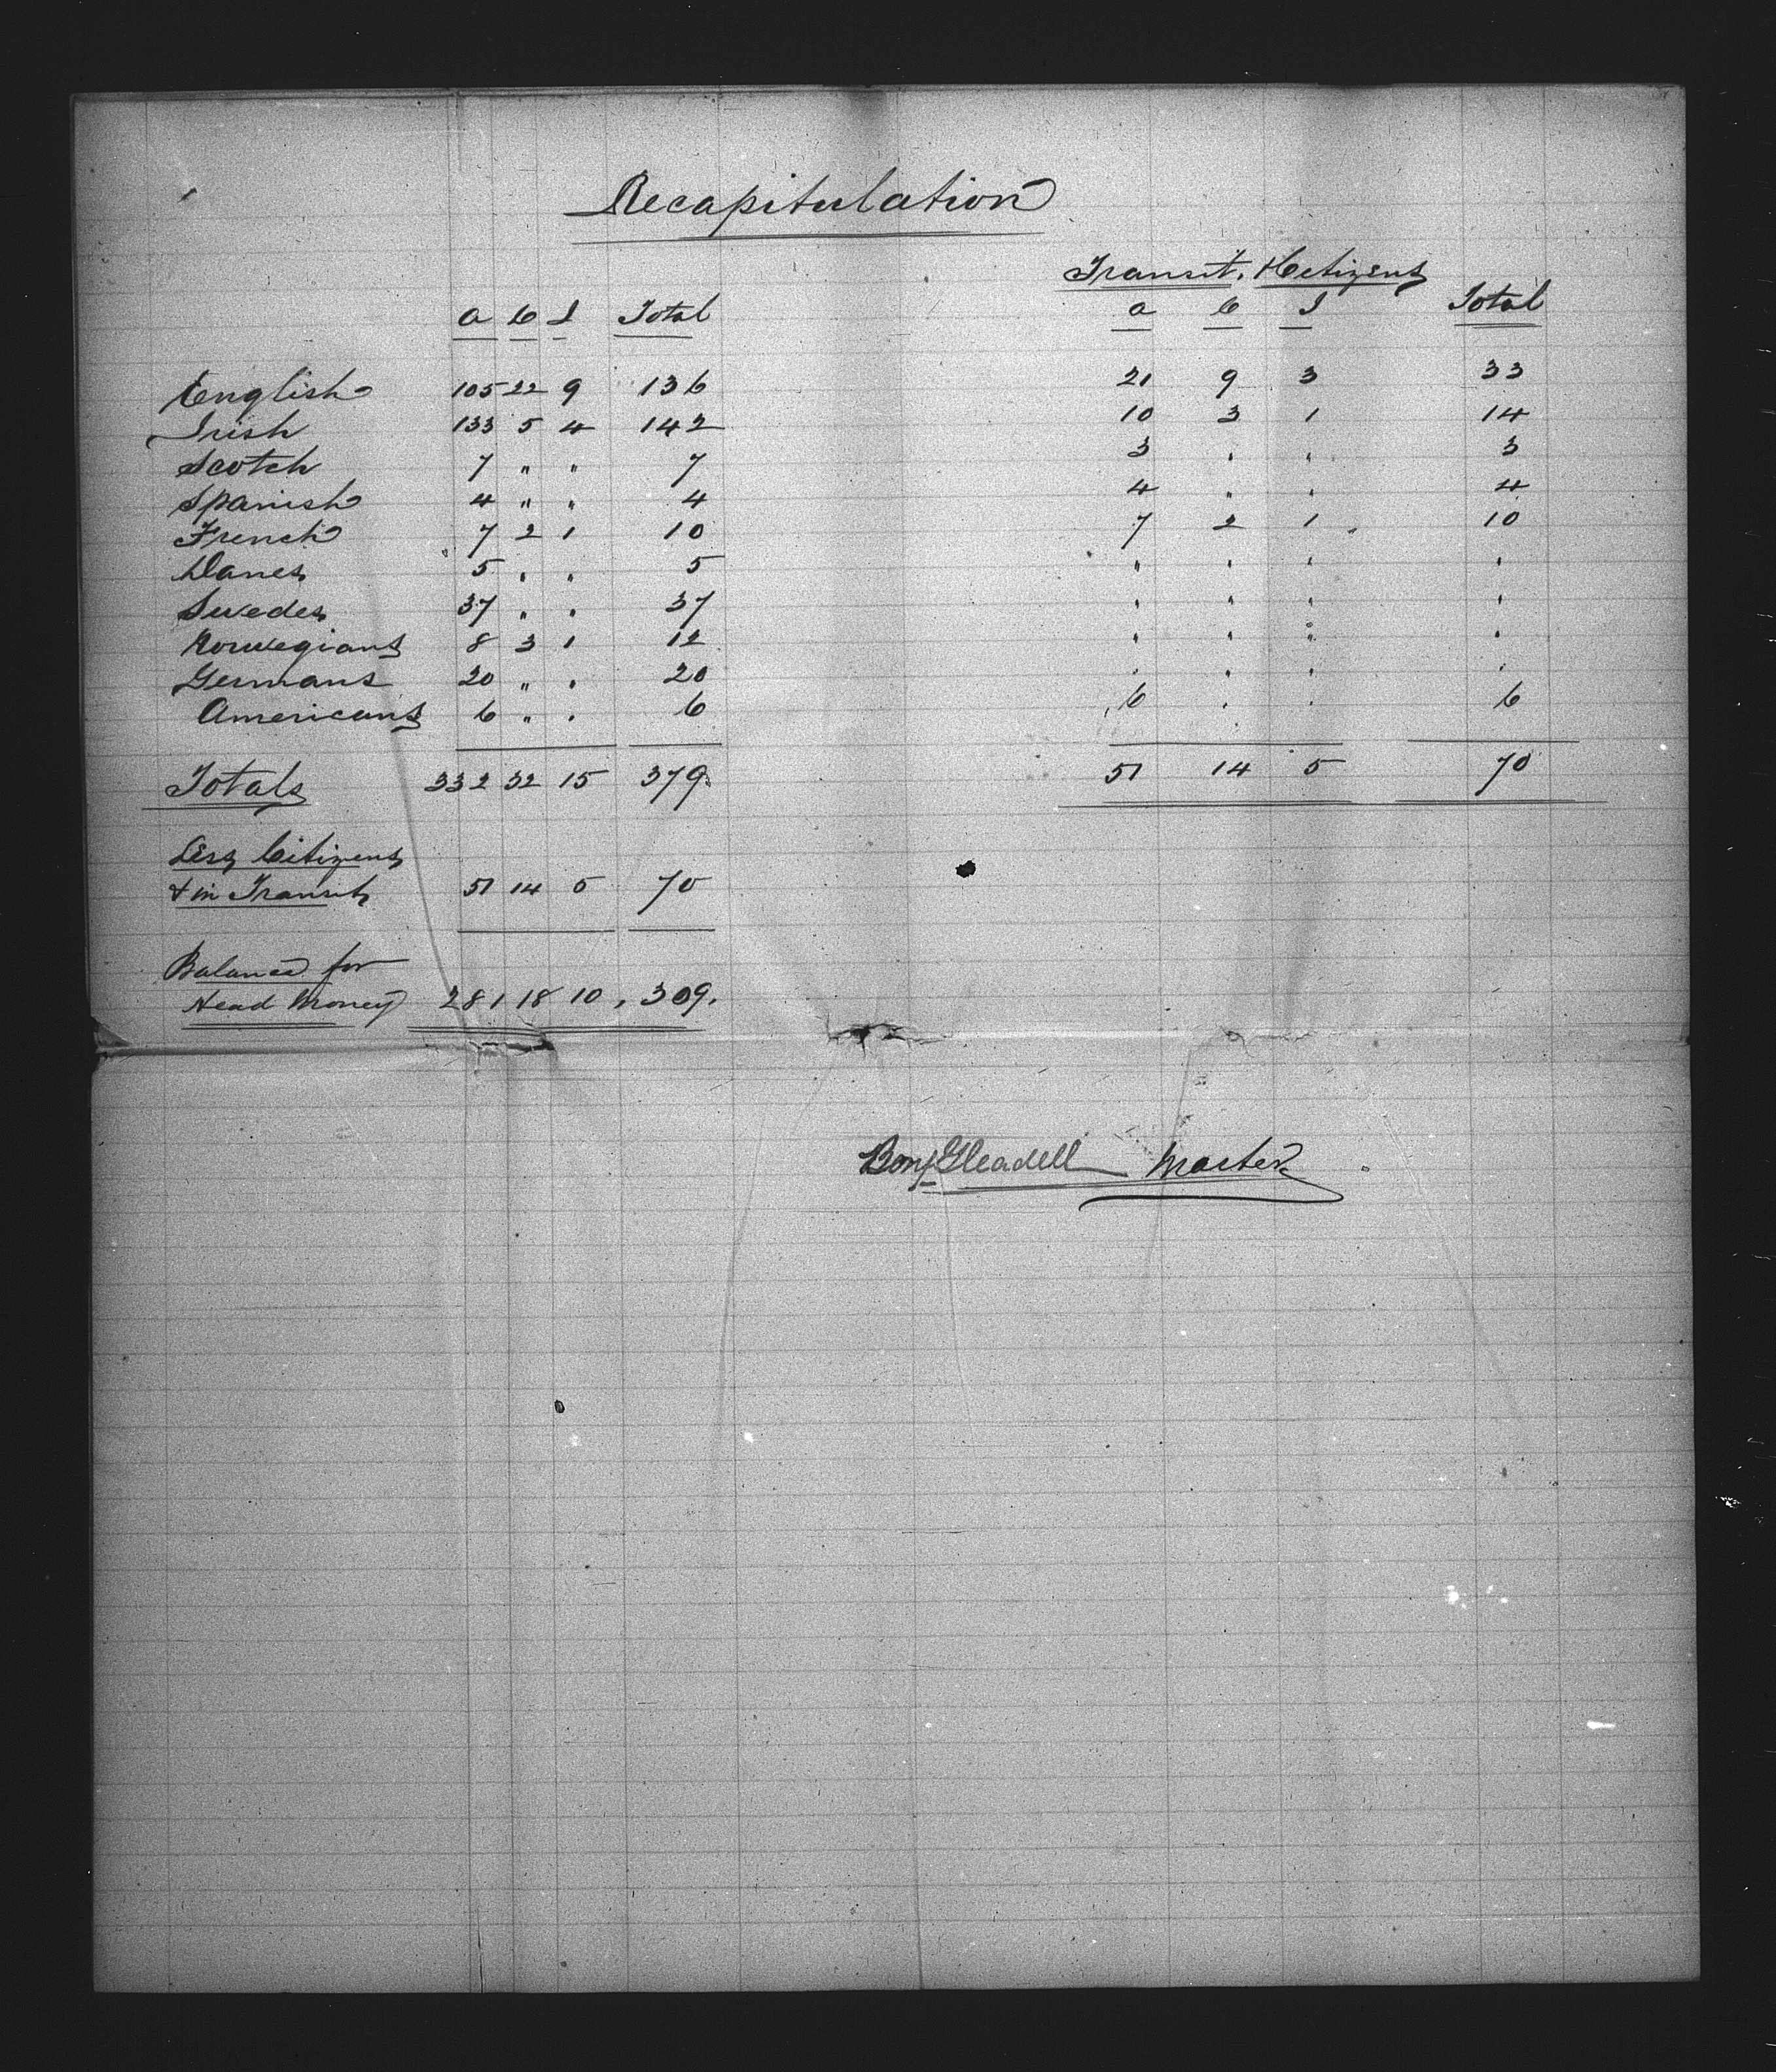 Recapitulation
Transit. & Citizens
a C I Total a C I Total
English 105 22 9 136 21 9 3 33
Irish 133 5 4 142 10 3 1 14
Scotch 7 " " 7 3 " " 3
Spanish 4 " " 4 4 " " 4
French 7 2 1 10 7 2 1 10
Danes 5 " " 5 " " " "
Swedes 37 " " 37 " " " "
Norwegians 8 3 1 12 " " " "
Germans 20 " " 20 " " " "
Americans 6 " " 6 6 " " 6
Totals 332 32 15 379. 51 14 5 70
Less Citizens
& in Transit 51 14 5 70
Balance for
Head Money 281 18 10 , 309.
Benj Gleadell Master